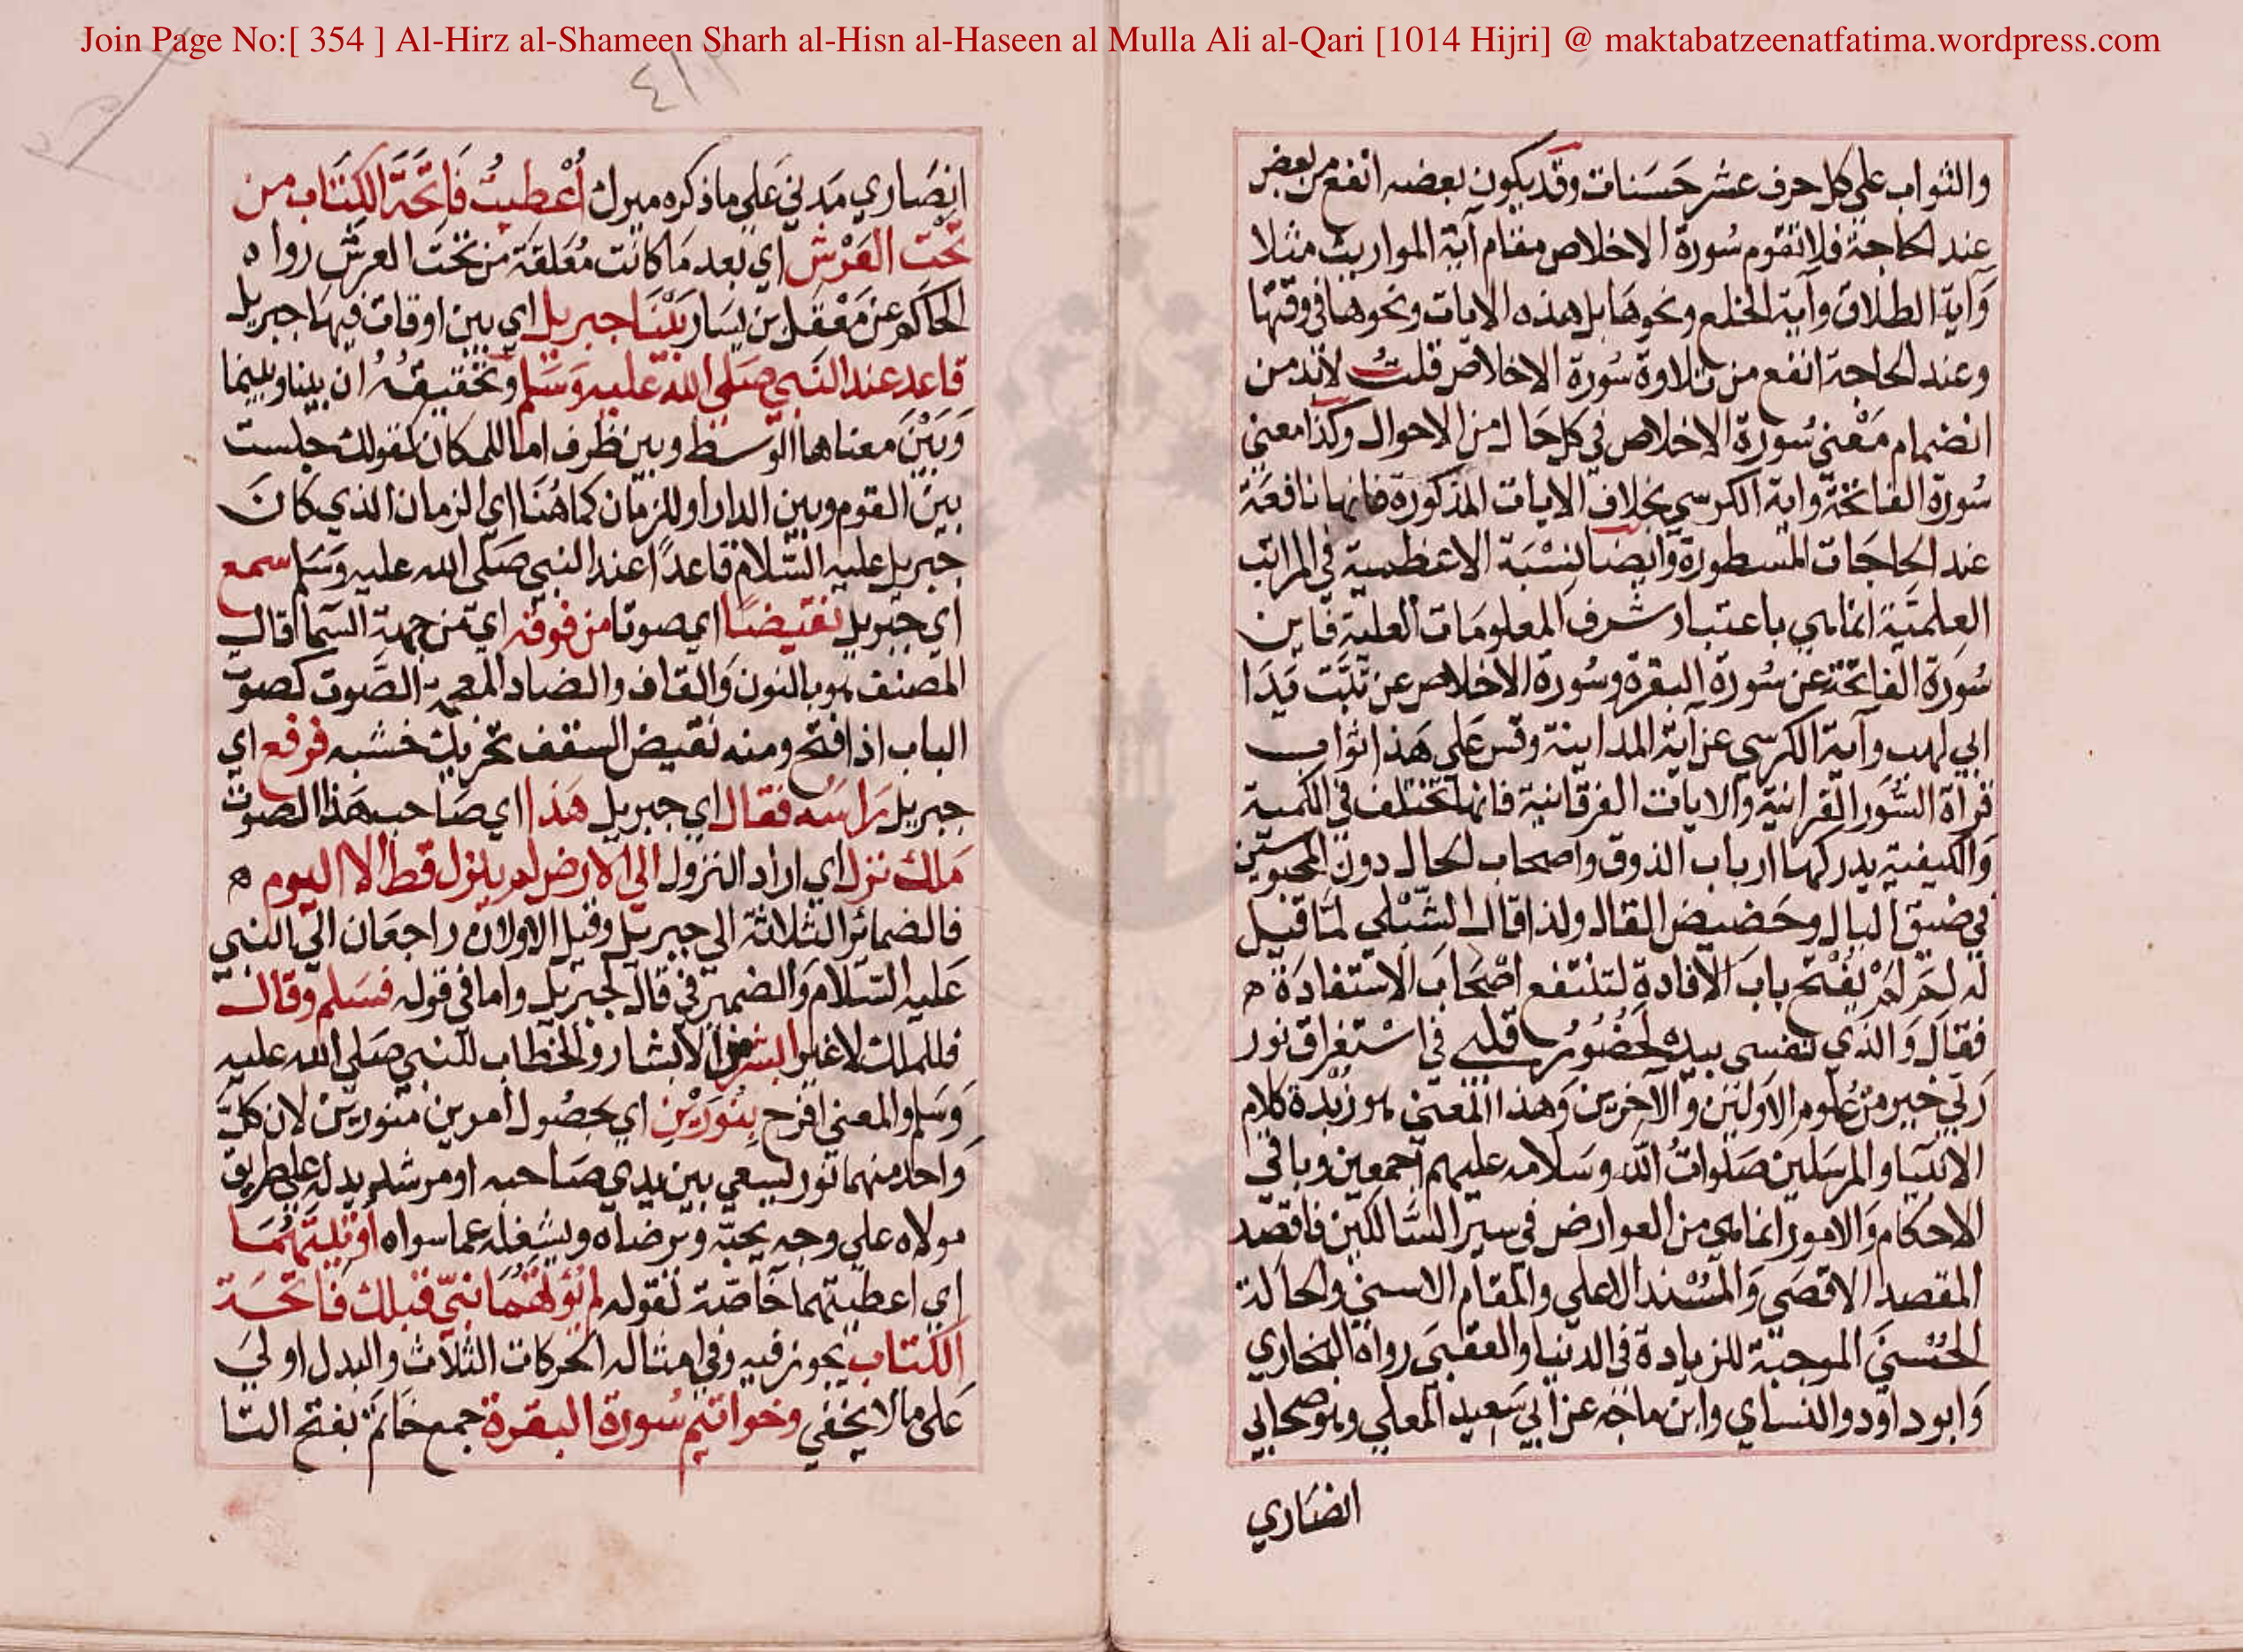 Join Page No:[ 354 ] Al-Hirz al-Shameen Sharh al-Hisn al-Haseen al Mulla Ali al-Qari [1014 Hijri] @ maktabatzeenatfatima.wordpress.com
والثواب على كل حرف عشر حَسَنات وقد يكون بعضه انفع من بعض
عند الحاجة فلا تقوم سُورة الاخلاص مقام آية المواريث مثلا
وَآية الطلاق وآية الخلع ونحوهَا بل هذه الايات ونحوها في وقتها
وعند الحاجة انفع من تلاوة سُورة الاخلاص قلتُ لابد من
انضمام مَعْنى سُورة الاخلاص في كل حَال من الاحوال وكذا معنى
سُورة الفاتحة واية الكرسي بخلاف الايات المذكورة فانها نافعَة
عند الحاجَات المسطورة وايضا لنسْبَة الاعظمية في المراتب
العِلميَّة انما هي باعتبار شرف المعلومَات العلية فاين
سُورة الفاتحة عن سُورة البقرة وسُورة الاخلاص عن تَبَّت يَدَا
ابي لهب وآية الكرسي عن آية المداينة وقس عَلى هَذا ثواب
قراة السُّوَر القرانية والايات الفرقانية فانها تختلف في الكمية
وَالكيفية يدركها ارباب الذوق واصحاب الحال دون المحبوسين
في ضيق البال وحَضيض القال ولذا قال الشبْلي لمَّا قيل
له لمَ لَمْ يُفتح باب الافادة لتنتفع اصْحَاب الاستفادَة ه
فقال وَالذي نفسى بيده لحُضُور قلبي في اسْتغراق نور
رَبّي خير من عُلوم الاوّلين والآخرين وَهذا المعنى هو زبْدة كلام
الانبيا والمرسَلين صَلواتُ اللّه وسَلامه عليهم أجمعين وباقي
الاحكام وَالامور انما هي من العوارض في سير السَّالكين فاقصد
المقصد الاقصَى وَالمسْند الاعلى والمقام الاسنى والحالة
الحُسْنىَ الموجبة للزيادة في الدنيا والعقبى رواه البخاري
وَابو داود والنساي وابن ماجه عن ابي سَعيد المعلى وهو صحابي
انصَاري
٤١٢
انصَاري مَدني عَلى ما ذكره ميرك أُعْطيتُ فَاتحَة الكتَاب من
تحْت العَرْش اي بعد مَا كانت مُعَلقَة من تحتَ العرش رواه
الحاكم عن مَعْقل بن يسَار بَيْنَا جبريل اي بين اوقات فيها جبريل
قاعد عند النَّبي صَلى الله عليه وَسَلم وتحقيقُه ان بينا وبينما
وَبَيْنَ معناها الوَسط وبين ظرف اما للمكان كقولك جلست
بين القوم وبين الدار او للزمَان كما هُنَا اي الزمان الذي كانَ
جبريل عليه السَّلام قاعدًا عند النبي صَلى الله عليه وَسَلم سمع
اي جبريل نقيضًا اي صوتا من فوقه اي من جهة السَّما قال
المصنف هو بالنون وَالقاف والضاد المعجمة الصَّوت كصوت
الباب اذا فتح ومنه نقيض السقف تحريك خشبه فرفع اي
جبريل رَاسَه فقال اي جبريل هَذا اي صَاحب هَذا الصوت
مَلك نزل اي اراد النزول الى الارض لم ينزل قط الا اليوم ه
فالضمائر الثلاثة الى جبريل وقيل الاولان راجعَان الى النبي
عَليه السَّلام وَالضمير في قال لجبريل واما في قوله فسَلم وقال
فللملك لا غير ابشر من الابشار والخطاب للنبي صَلى الله عليه
وَسَلم والمعنى افرح بنُورَيْن اي بحصُول امرين منورين لان كلّ
وَاحد منهما نور يسعى بين يدي صَاحبه او مرشد يدله على طريق
مولاه على وجه يحبّه ويرضاه ويشغله عما سواه اوتيتَهُمَا
اي اعطيتهما خاصّة لقوله لم يُؤتَهُمَا نبيّ قبلك فَاتحَة
الكتاب يجوز فيه وفي امثاله الحركات الثلاث والبدل اولىَ
عَلى مالا يخفي وخواتيم سُورة البقرة جمع خَاتم بفتح التا